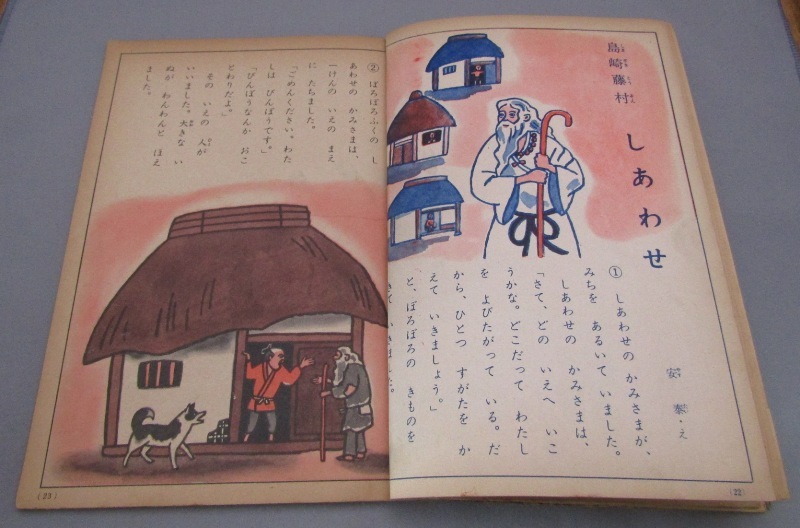 島崎藤村
しあわせ
安 泰・え
① しあわせの かみさまが、
みちを あるいて いました。
しあわせの かみさまは、
「さて、どの いえへ いこ
うかな。どこだって わたし
を よびたがって いる。だ
から、ひとつ すがたを か
えて いきましょう。」
と、ぼろぼろの きものを
きて いきました。
(22)
② ぼろぼろふくの し
あわせの かみさまは、
一けんの いえの まえ
に たちました。
「ごめんください。わた
しは びんぼうです。」
「びんぼうなんか おこ
とわりだよ。」
その いえの 人が
いいました。大きな い
ぬが わんわんと ほえ
ました。
(23)